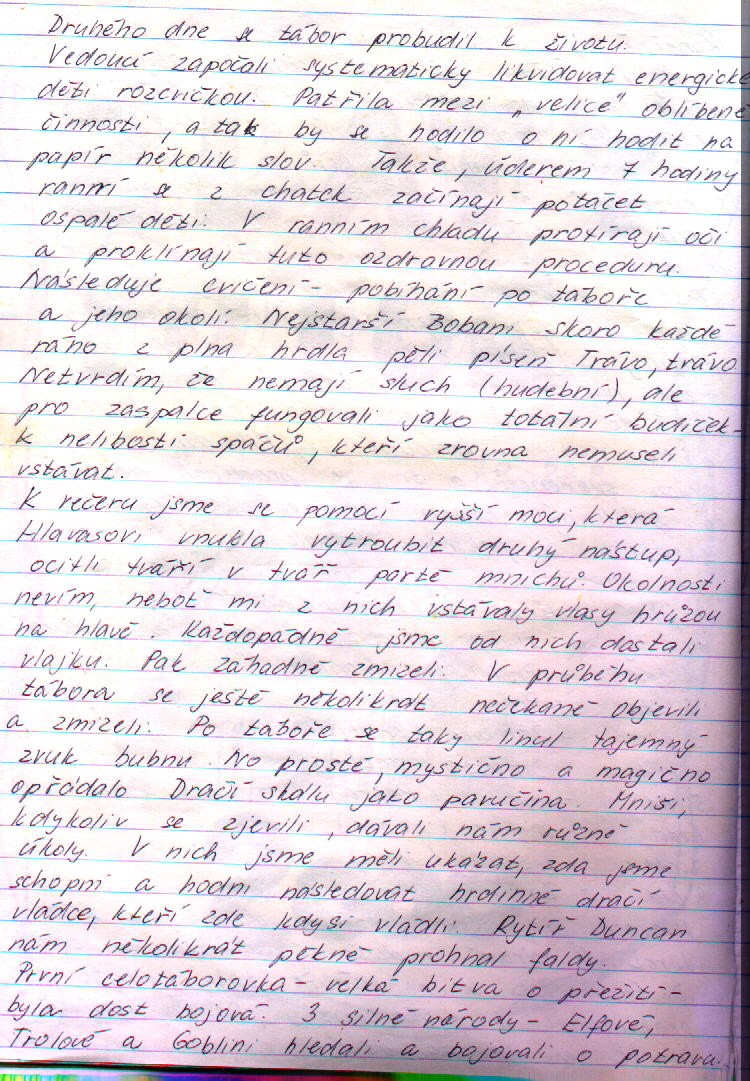 Druhého dne se tábor probudil k životu.
Vedoucí započali systematicky likvidovat energické
děti rozcvičkou. Patřila mezi „velice" oblíbené
činnosti, a tak by se hodilo o ní hodit na
papír několik slov. Takže, úderem 7 hodiny
ranní se z chatek začínají potácet
ospalé děti. V ranním chladu protírají oči
a proklínají tuto ozdravnou proceduru.
Následuje cvičení - pobíhání po táboře
a jeho okolí. Nejstarší Bobani skoro každé
ráno z plna hrdla pěli píseň Trávo, trávo.
Netvrdím, že nemají sluch (hudební), ale
pro zaspalce fungovali jako totální budíček -
k nelibosti spáčů, kteří zrovna nemuseli
vstávat.
K večeru jsme se pomocí vyšší moci, která
Hlavasovi vnukla vytroubit druhý nástup,
ocitli tváří v tvář partě mnichů. Okolnosti
nevím, neboť mi z nich vstávaly vlasy hrůzou
na hlavě. Každopádně jsme od nich dostali
vlajku. Pak záhadně zmizeli. V průběhu
tábora se ještě několikrát nečekaně objevili
a zmizeli. Po táboře se taky linul tajemný
zvuk bubnu. No prostě, mystično a magično
opřádalo Dračí skálu jako pavučina. Mniši,
kdykoliv se zjevili, dávali nám různé
úkoly. V nich jsme měli ukázat, zda jsme
schopni a hodni následovat hrdinné dračí
vládce, kteří zde kdysi vládli. Rytíř Duncan
nám několikrát pěkně prohnal faldy.
První celotáborovka - velká bitva o přežití -
byla dost bojová. 3 silné národy - Elfové,
Trolové a Goblini hledali a bojovali o potravu.